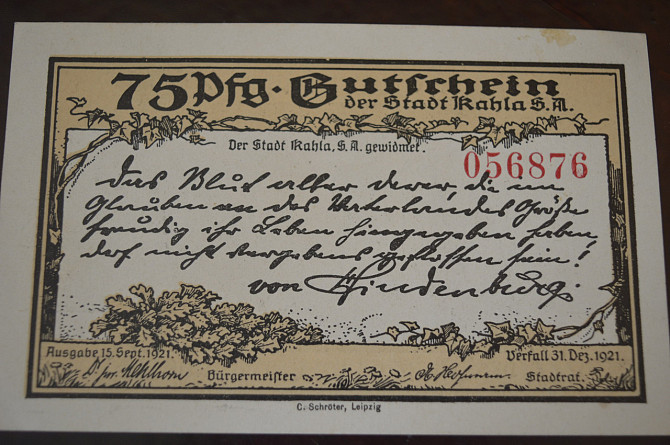 75 Pfg. Gutschein
der Stadt Kahla S. A.
Der Stadt Kahla, S. A. gewidmet.
056876
Das Blut aller derer, die im
Glauben an des Vaterlandes Größe
freudig ihr Leben hingegeben haben,
darf nicht vergebens geflossen sein!
von Hindenburg.
Ausgabe 15. Sept. 1921.
Verfall 31. Dez. 1921.
Bürgermeister
Stadtrat.
C. Schröter, Leipzig